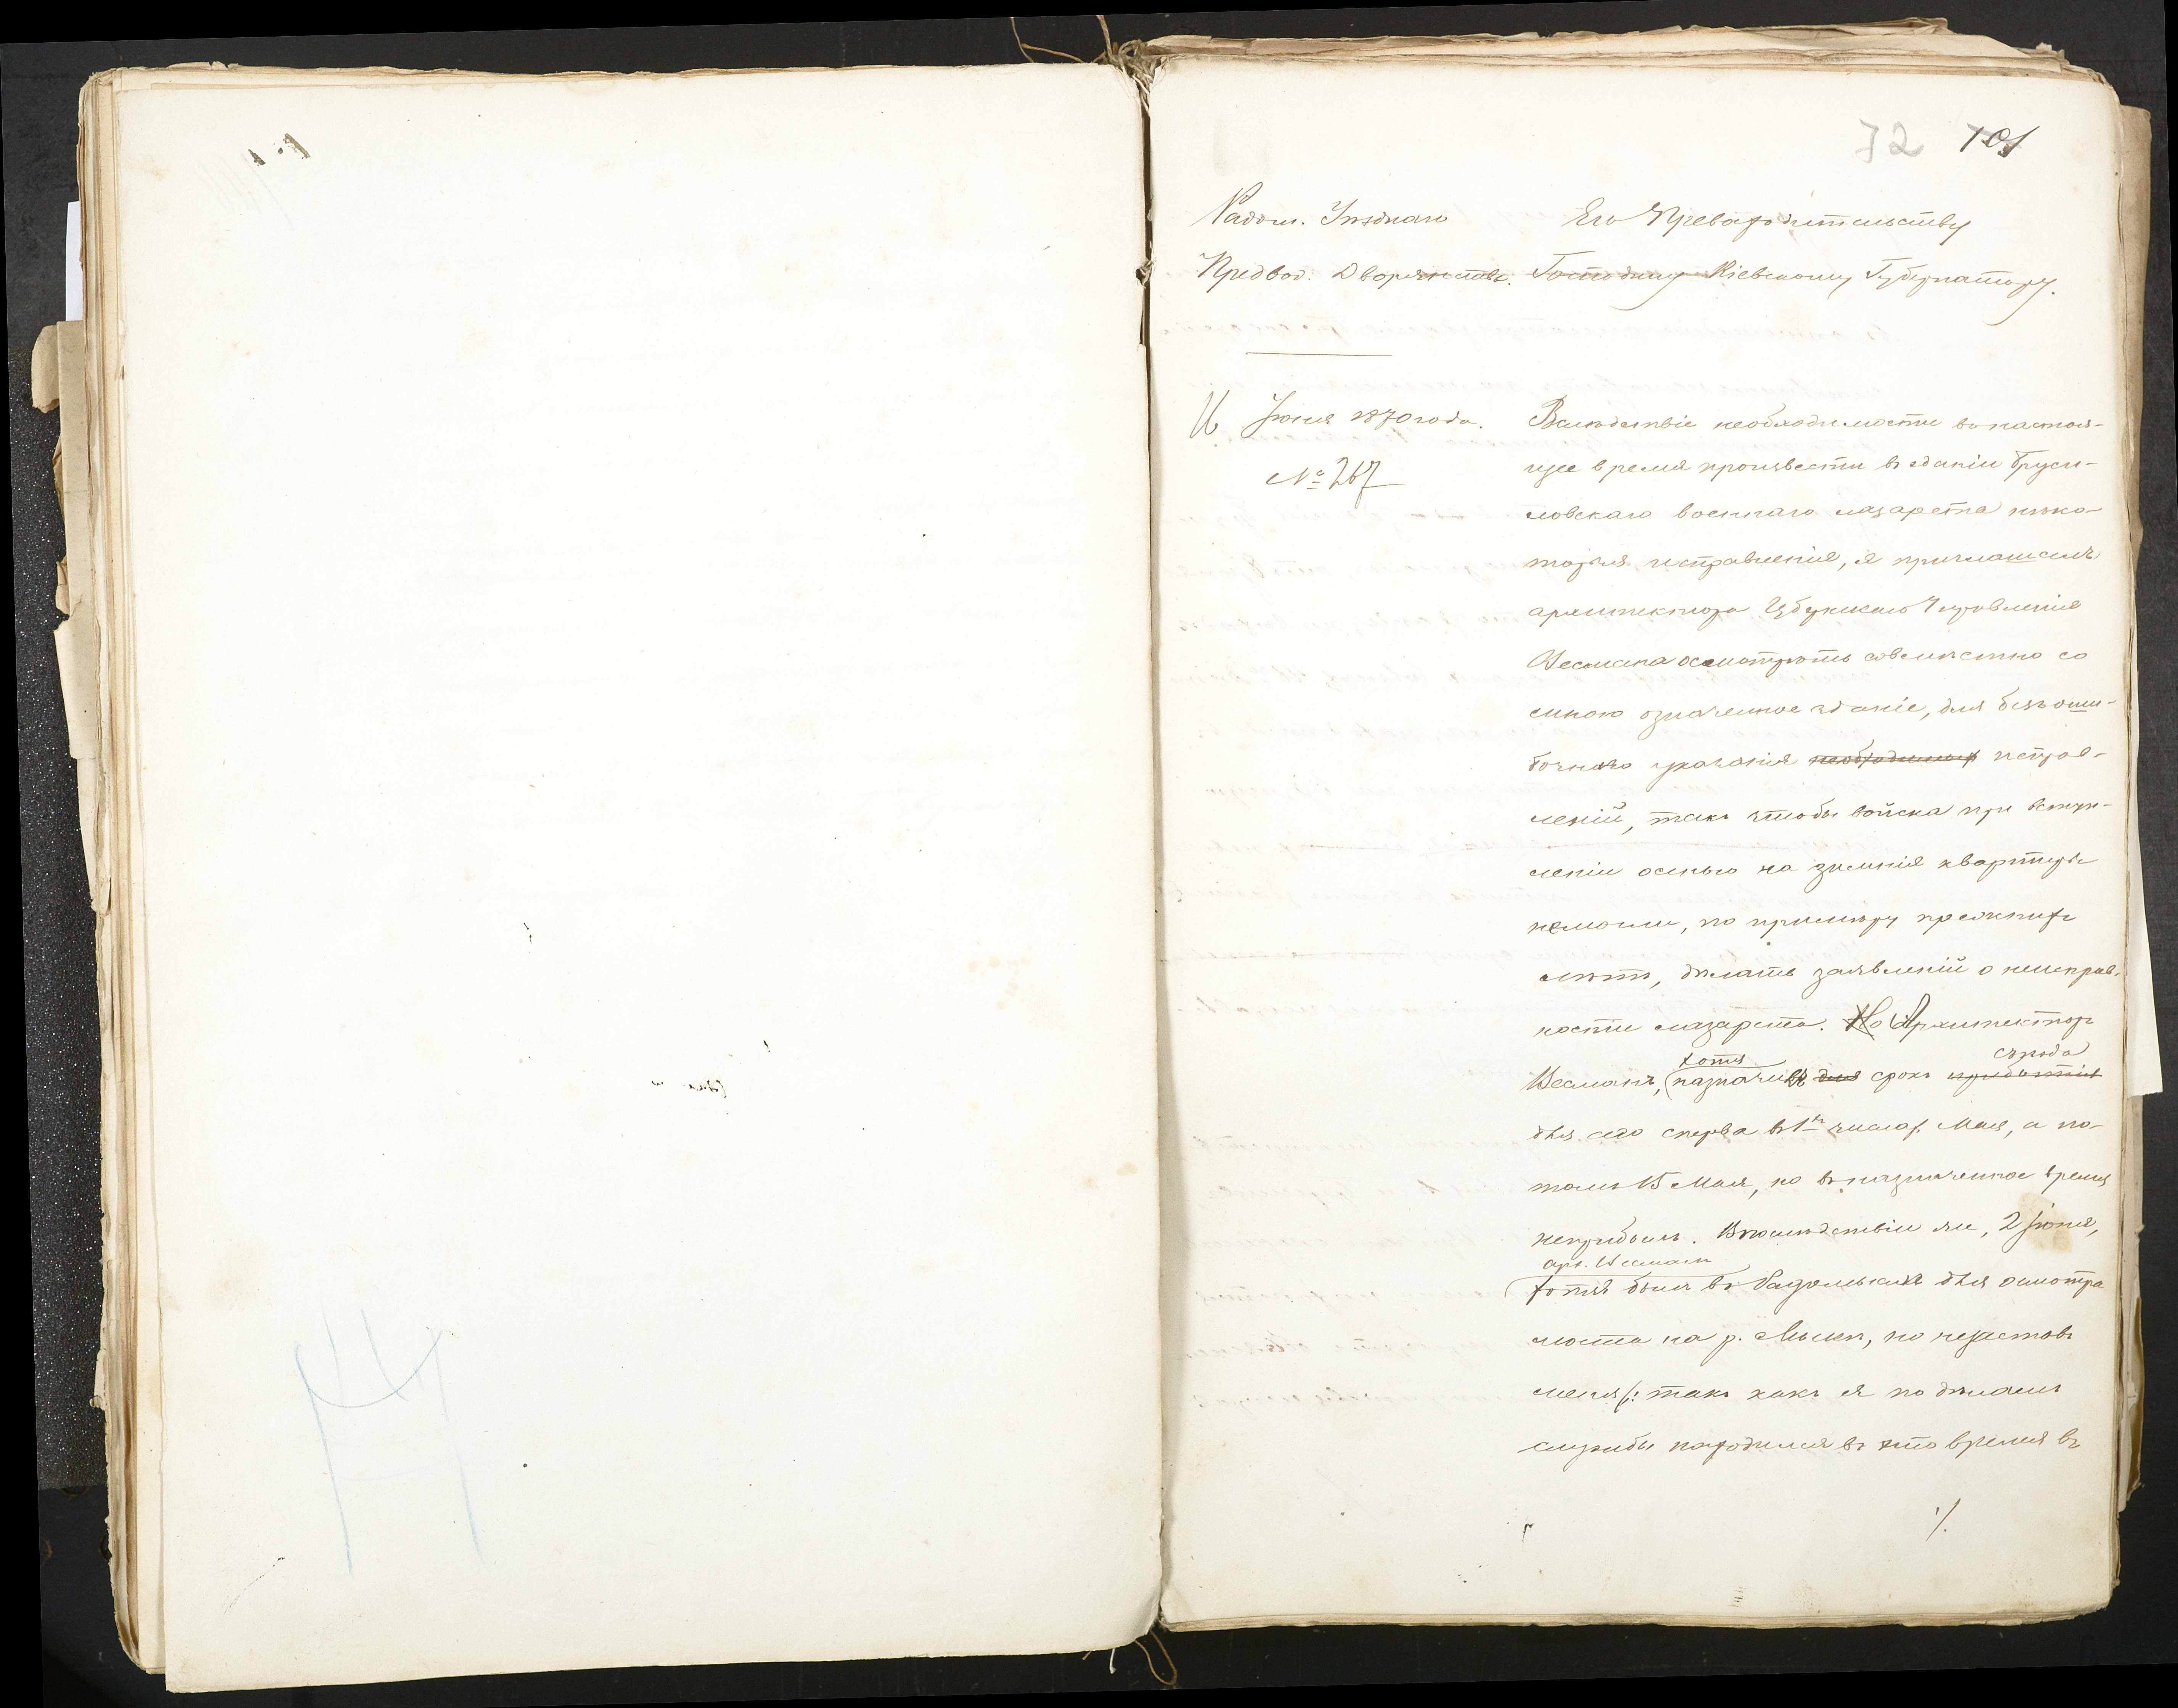 72 101
Радом. Уѣзднаго
Предвод. Дворянства.
Его Превосходительству
Господину Кіевскому Губернатору.
16 Іюня 1870 года.
№ 267
Вслѣдствіе необходимости въ настоя-
щее время произвести въ зданіи Бруси-
ловскаго военнаго лазарета нѣко-
торыя исправленія, я приглашалъ
архитектора Управленія
Весмана осмотрѣть совмѣстно со
мною означенное зданіе, для безъоши-
бочнаго указанія необходимыхъ исправ-
леній, такъ чтобы войска при вступ-
леніи осенью на зимнія квартиры
немогли, по примѣру прежнихъ
лѣтъ, дѣлать заявленій о неисправ-
ности лазарета. Но Архитекторъ
хотя съѣзда
Весманъ, назначилъ для срокъ прибытія
для сего сперва въ 1хъ числах. Мая, а по-
томъ 15 Мая, но въ назначенное время
неприбылъ. Впослѣдствіи же, 2 Іюня,
арх. Весманъ
хотя былъ въ Радомыслѣ для осмотра
моста на р. Мыкѣ, но незаставъ
меня /: такъ какъ я по дѣламъ
службы находился въ это время въ
./.